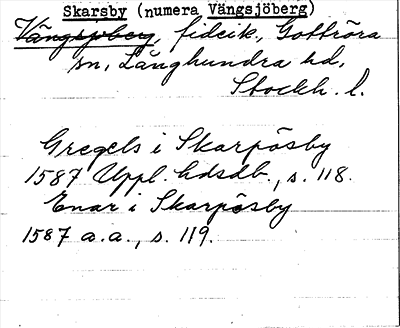 Skarsby (numera Vängsjöberg)
Vängsjöberg, fideik., Gottröra
sn, Långhundra hd,
Stockh. l.
Gregels i Skarpösby
1587 Uppl. hdsdb., s. 118.
Enar i Skarpösby
1587 a.a., s. 119.